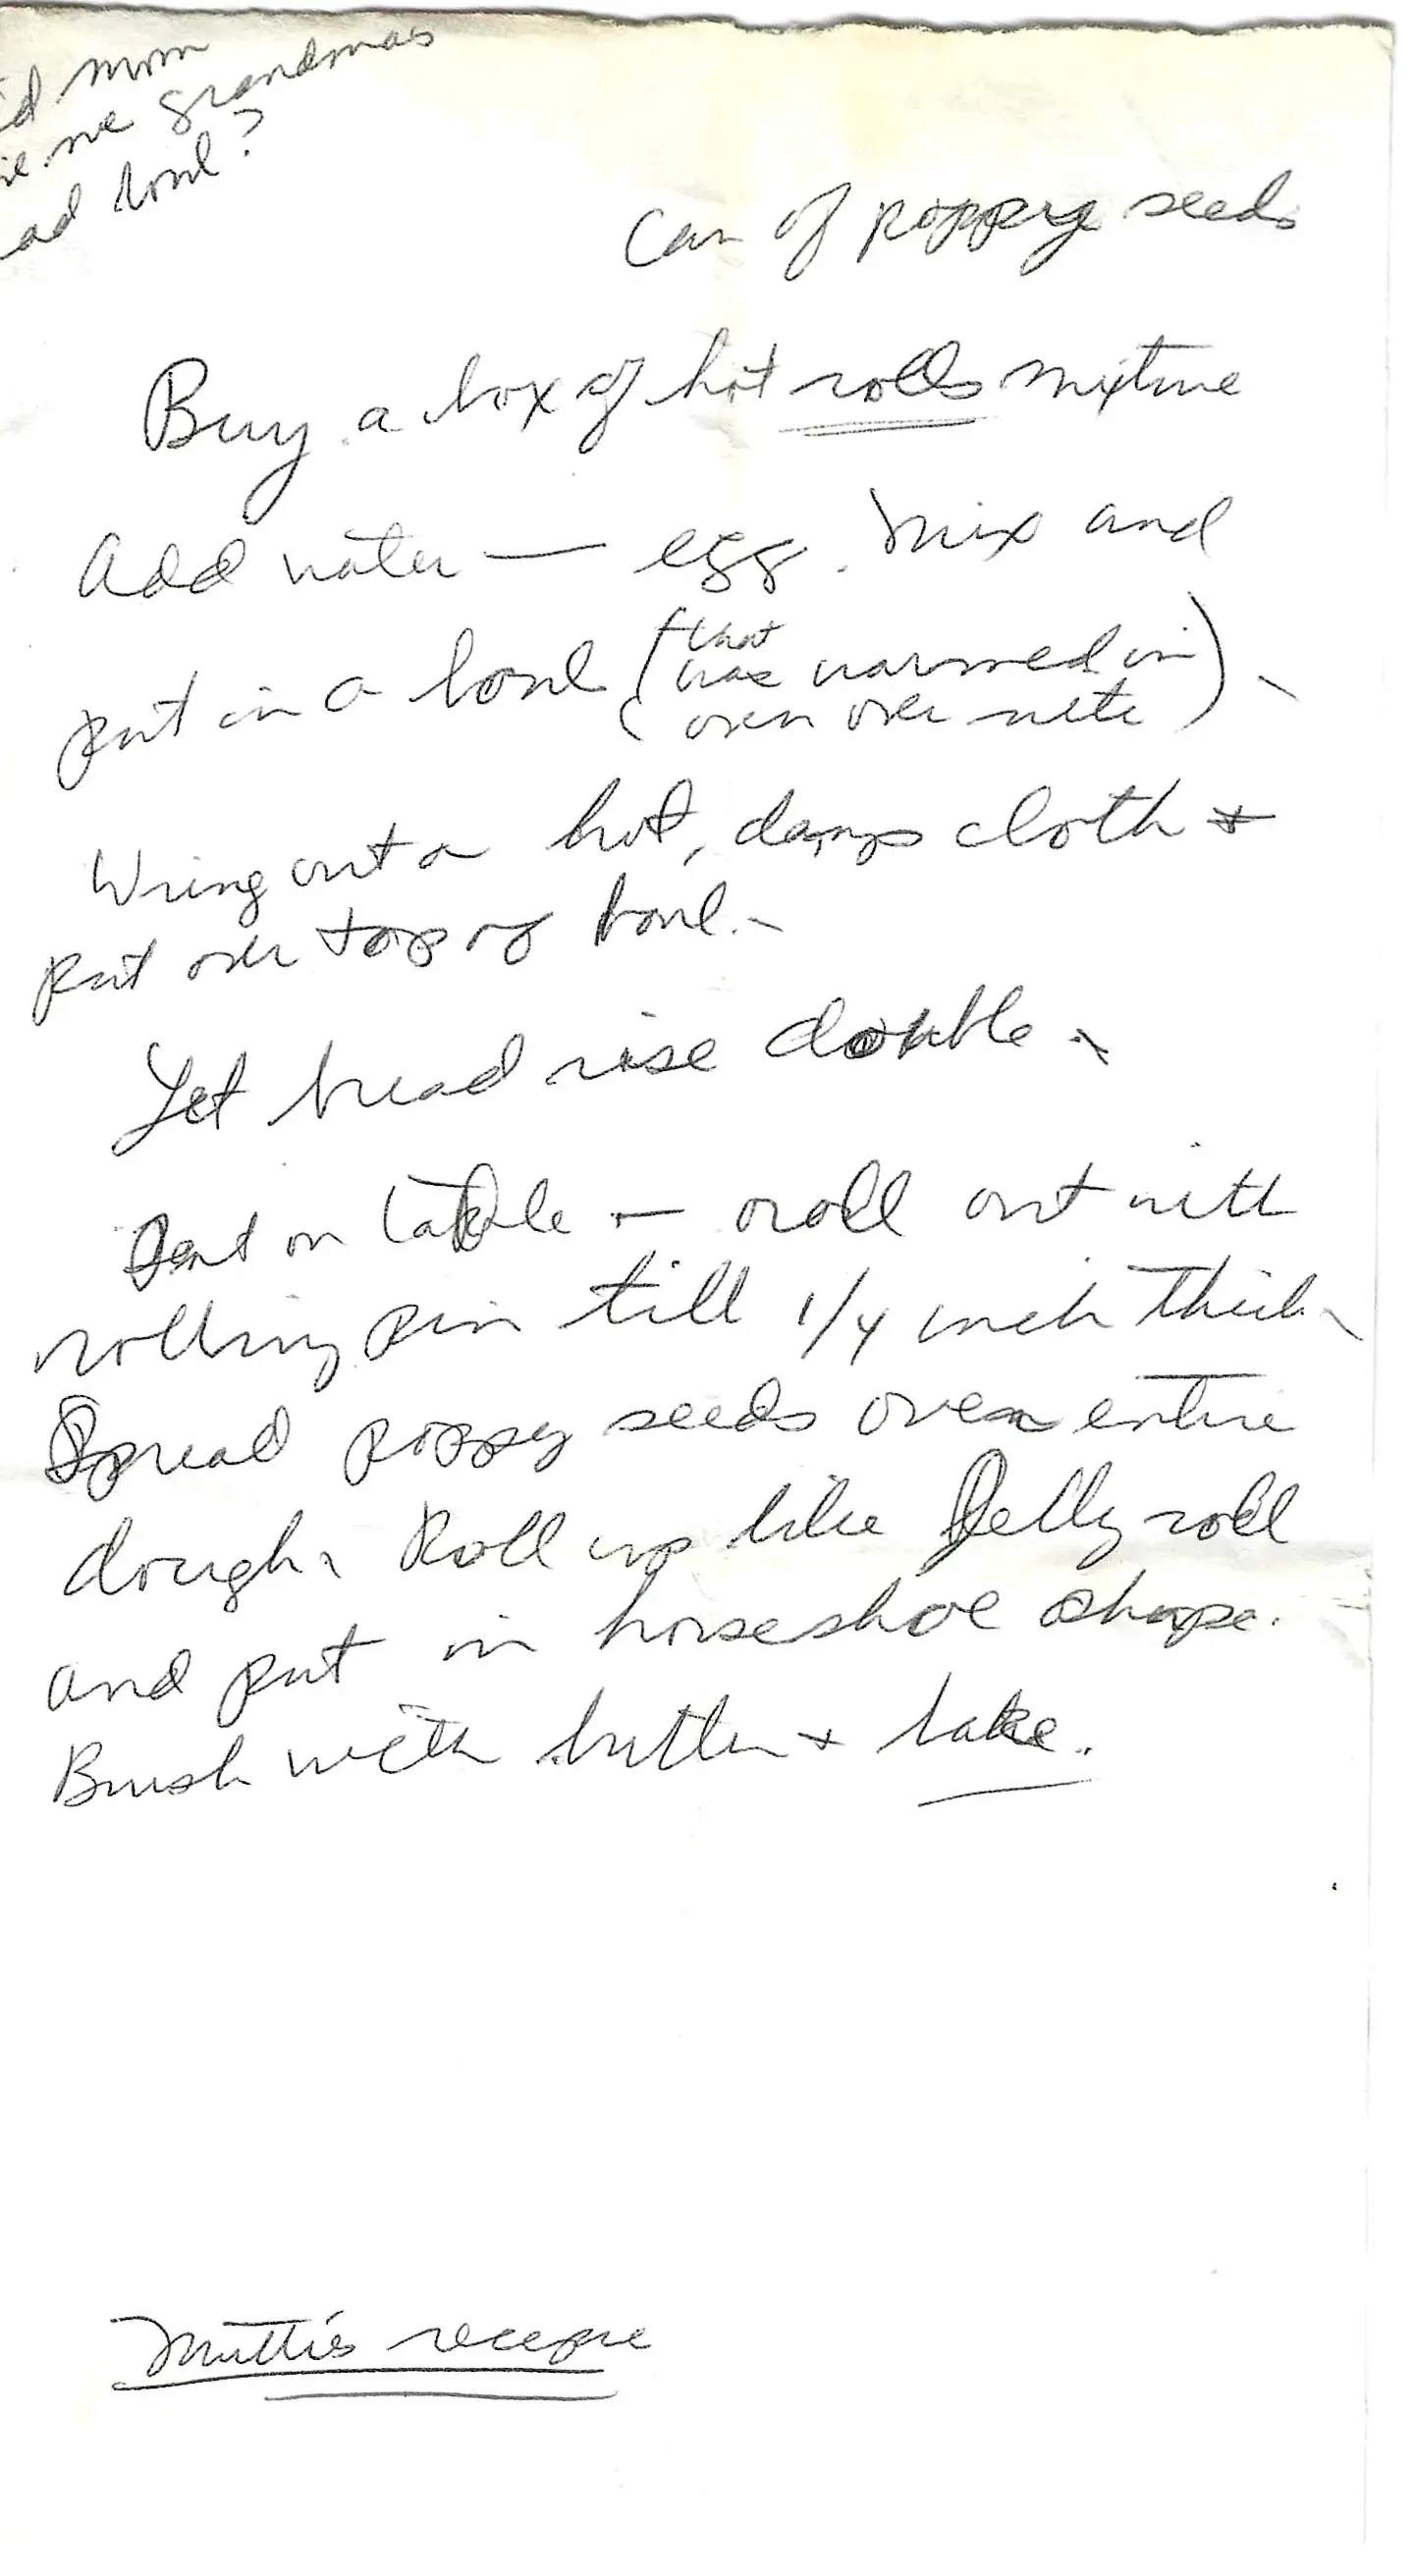 mom
me grandmas
bowl?
Can of poppy seeds
Buy a box of hot rolls mixture
Add water — egg. Mix and
put in a bowl (that
was warmed in
oven over nite).
Wring out a hot, damp cloth +
put over top of bowl.
Let bread rise double.
Put on table — roll out with
rolling pin till 1/4 inch thick.
Spread poppy seeds over entire
dough. Roll up like Jelly roll
and put in horseshoe shape.
Brush with butter + bake.
Mutti's recepie